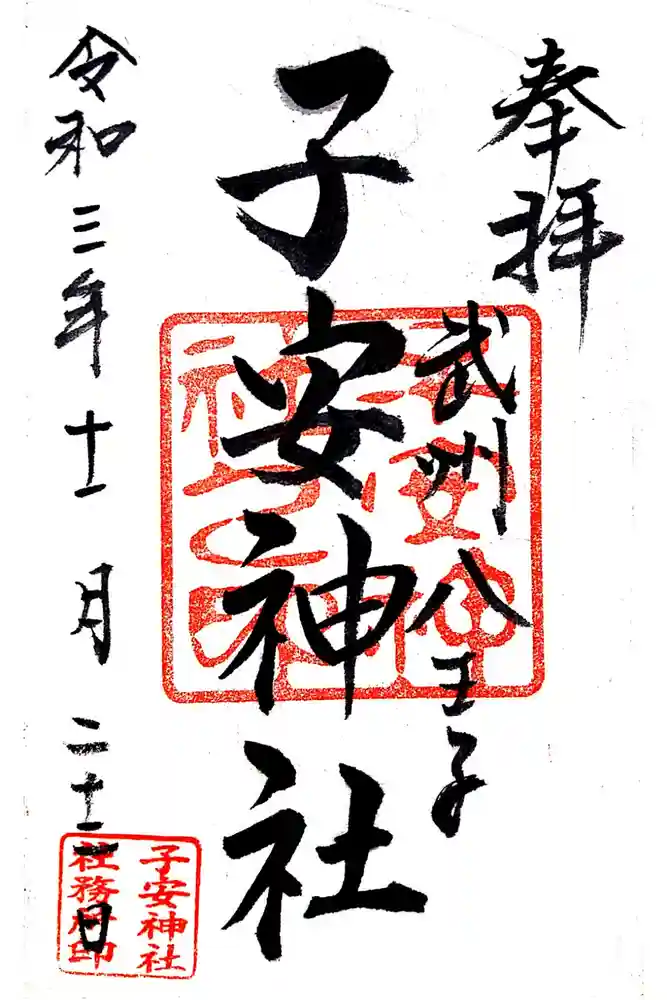 奉拝
武州八王子
子安神社
令和三年十一月二十二日
子安神
社之印
子安神社
社務所印